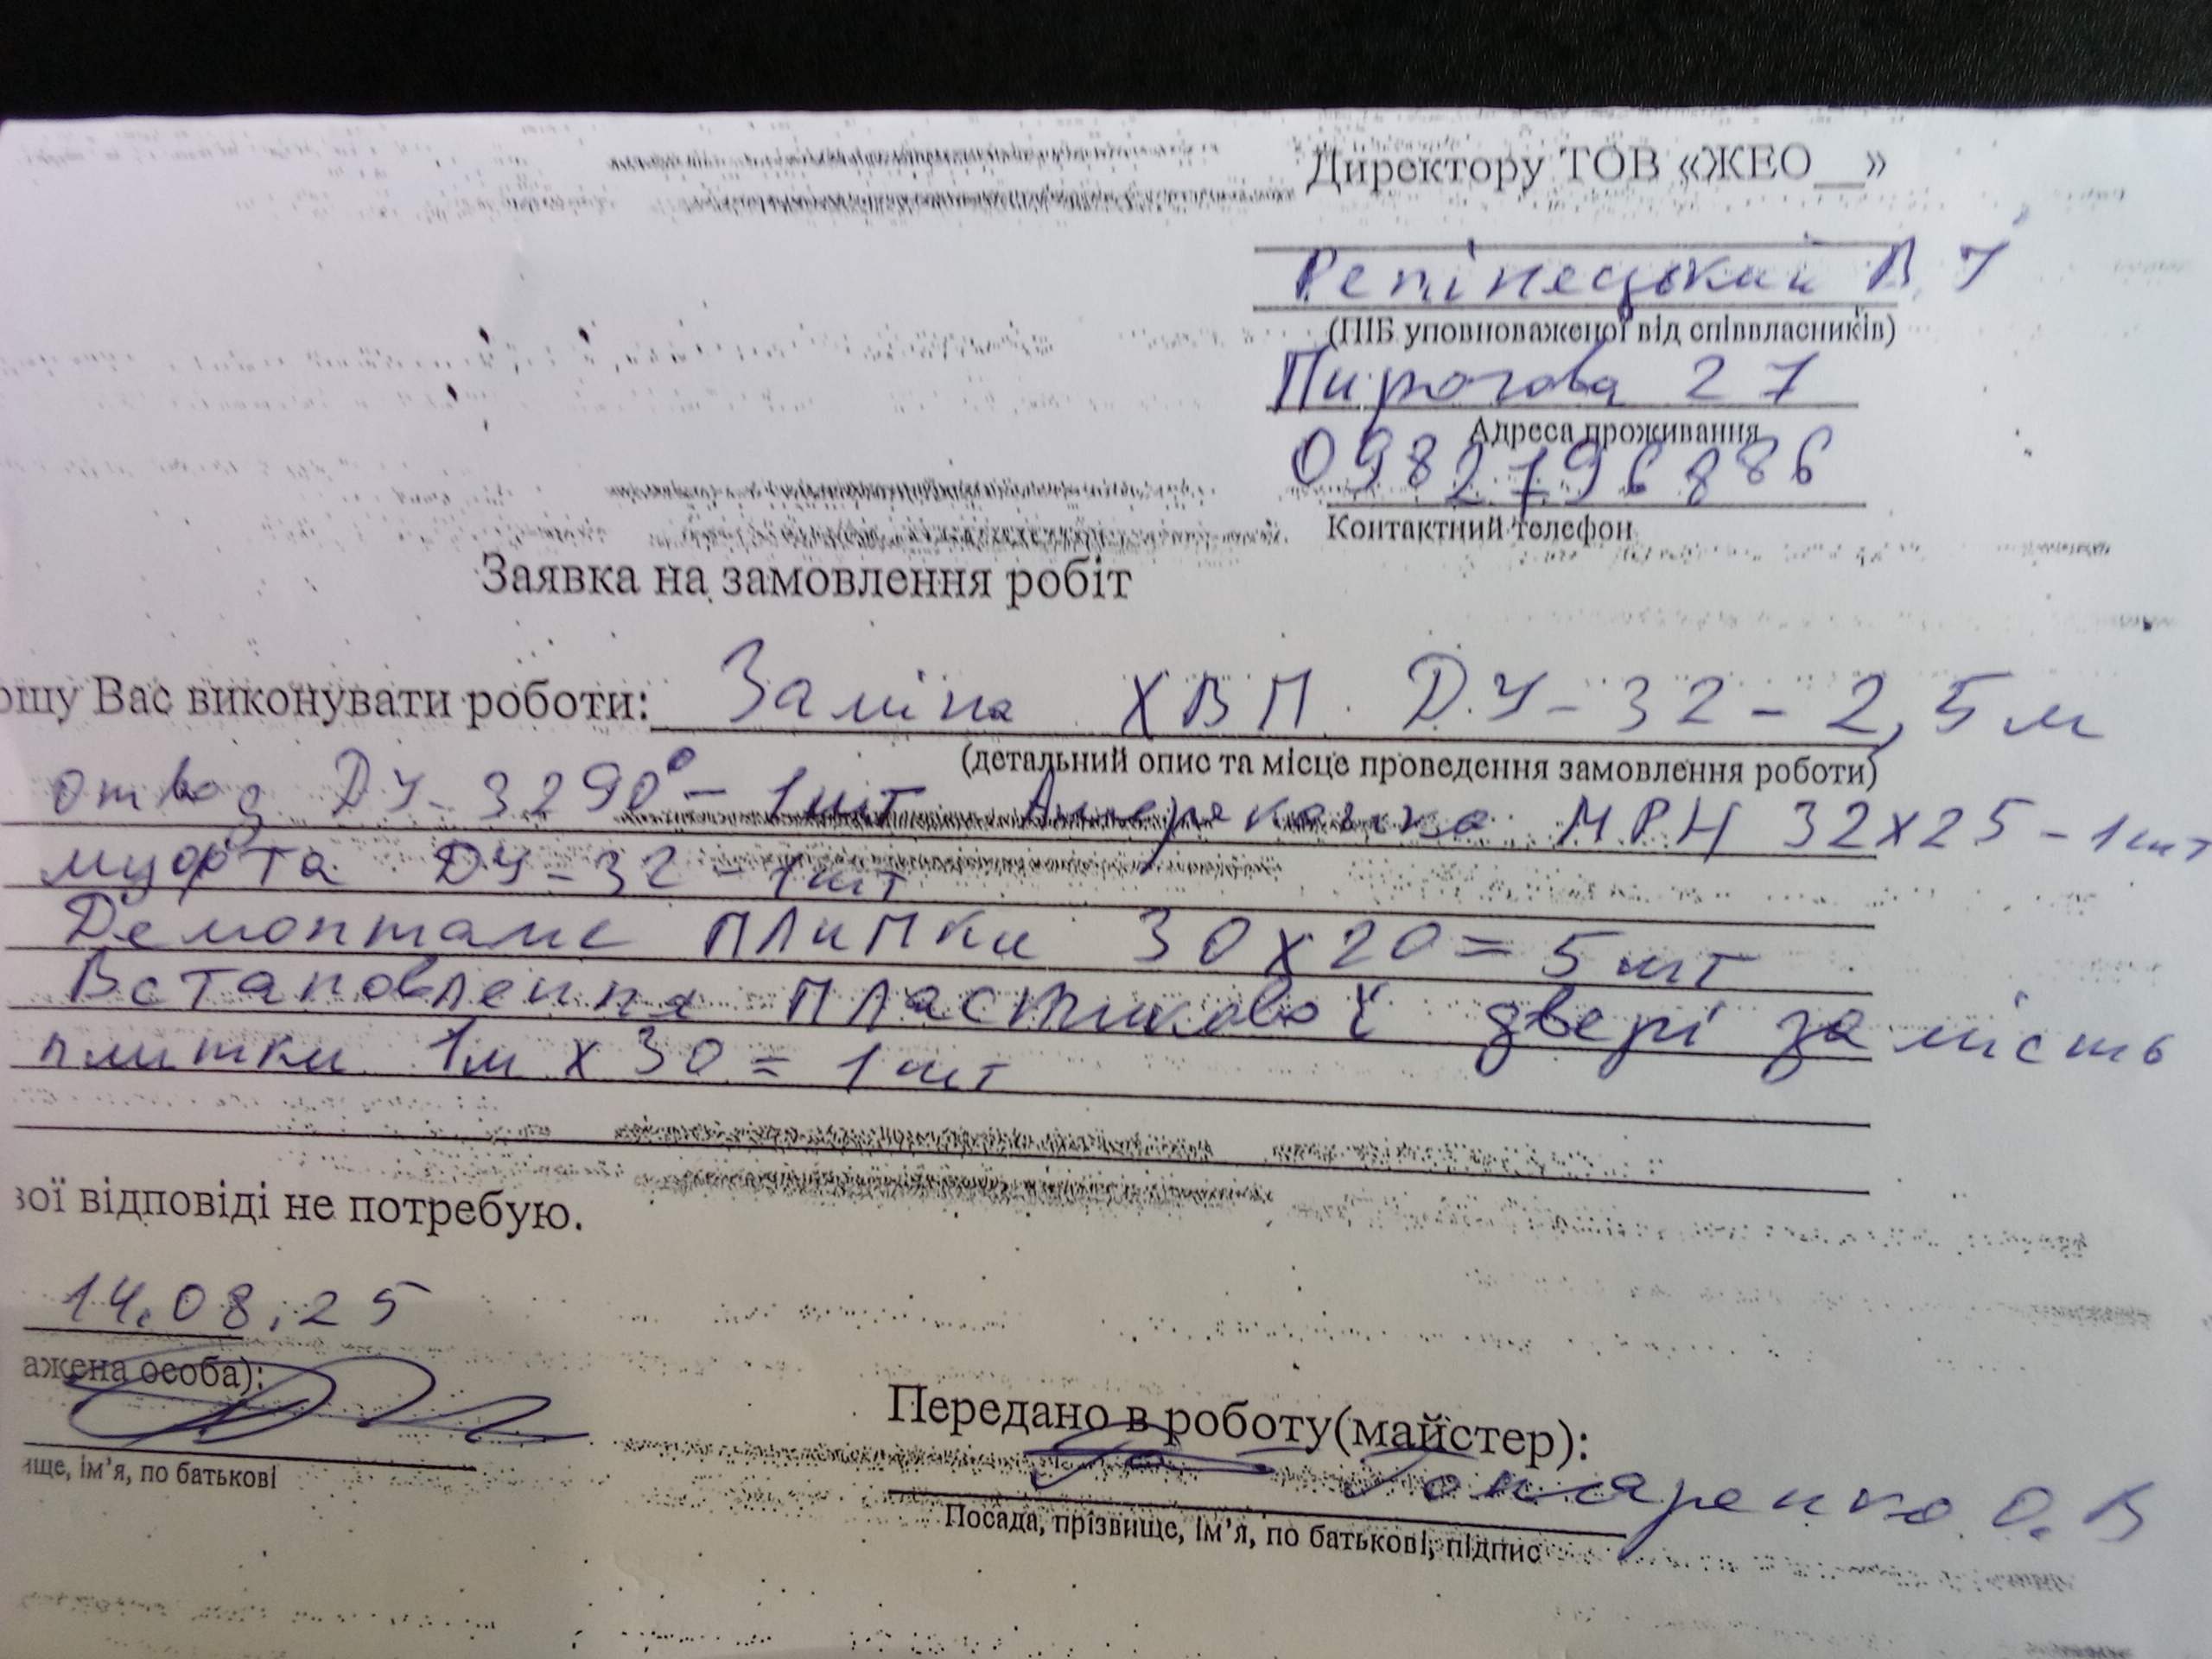 Директору ТОВ «ЖЕО__»
Репінецький В. І
(ПІБ уповноваженої від співвласників)
Пирогова 27
Адреса проживання
0982796886
Контактний телефон
Заявка на замовлення робіт
ошу Вас виконувати роботи: Заміна ХВП ДУ-32-2,5м
(детальний опис та місце проведення замовлення роботи)
отвод ДУ-32 90° - 1шт Амереканка МРН 32х25-1шт
муфта ДУ-32-1шт
Демонтаж плитки 30х20=5шт
Встановлення пластикової двері замість
плитки 1м х 30 = 1шт
вої відповіді не потребую.
14.08.25
ажена особа):
ище, ім'я, по батькові
Передано в роботу(майстер):
Гончаренко О. В
Посада, прізвище, ім'я, по батькові, підпис